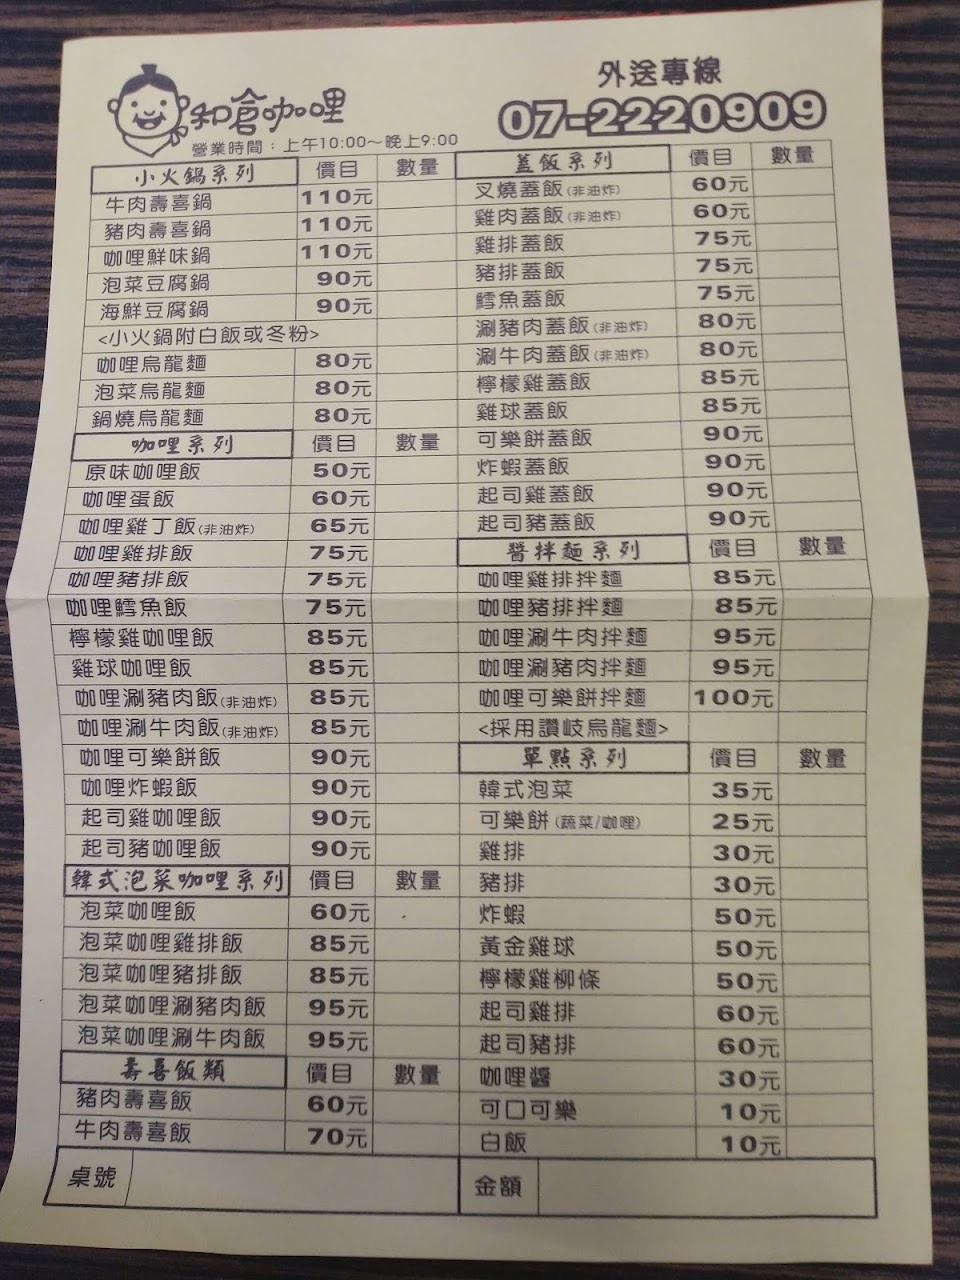 和倉咖哩
營業時間：上午10:00～晚上9:00
外送專線
07-2220909
小火鍋系列 價目 數量
牛肉壽喜鍋 110元
豬肉壽喜鍋 110元
咖哩鮮味鍋 110元
泡菜豆腐鍋 90元
海鮮豆腐鍋 90元
<小火鍋附白飯或冬粉>
咖哩烏龍麵 80元
泡菜烏龍麵 80元
鍋燒烏龍麵 80元
咖哩系列 價目 數量
原味咖哩飯 50元
咖哩蛋飯 60元
咖哩雞丁飯(非油炸) 65元
咖哩雞排飯 75元
咖哩豬排飯 75元
咖哩鱈魚飯 75元
檸檬雞咖哩飯 85元
雞球咖哩飯 85元
咖哩涮豬肉飯(非油炸) 85元
咖哩涮牛肉飯(非油炸) 85元
咖哩可樂餅飯 90元
咖哩炸蝦飯 90元
起司雞咖哩飯 90元
起司豬咖哩飯 90元
韓式泡菜咖哩系列 價目 數量
泡菜咖哩飯 60元
泡菜咖哩雞排飯 85元
泡菜咖哩豬排飯 85元
泡菜咖哩涮豬肉飯 95元
泡菜咖哩涮牛肉飯 95元
壽喜飯類 價目 數量
豬肉壽喜飯 60元
牛肉壽喜飯 70元
桌號
蓋飯系列 價目 數量
叉燒蓋飯(非油炸) 60元
雞肉蓋飯(非油炸) 60元
雞排蓋飯 75元
豬排蓋飯 75元
鱈魚蓋飯 75元
涮豬肉蓋飯(非油炸) 80元
涮牛肉蓋飯(非油炸) 80元
檸檬雞蓋飯 85元
雞球蓋飯 85元
可樂餅蓋飯 90元
炸蝦蓋飯 90元
起司雞蓋飯 90元
起司豬蓋飯 90元
醬拌麵系列 價目 數量
咖哩雞排拌麵 85元
咖哩豬排拌麵 85元
咖哩涮牛肉拌麵 95元
咖哩涮豬肉拌麵 95元
咖哩可樂餅拌麵 100元
<採用讚岐烏龍麵>
單點系列 價目 數量
韓式泡菜 35元
可樂餅(蔬菜/咖哩) 25元
雞排 30元
豬排 30元
炸蝦 50元
黃金雞球 50元
檸檬雞柳條 50元
起司雞排 60元
起司豬排 60元
咖哩醬 30元
可口可樂 10元
白飯 10元
金額